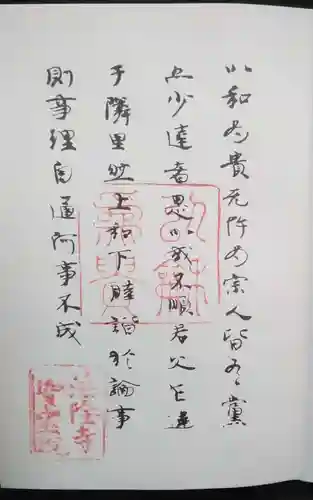 以和為貴无忤為宗人皆有黨
亦少達者是以或不順君父乍違
于隣里然上和下睦諧於論事
則事理自通何事不成
以和
為貴
法隆寺
聖霊院